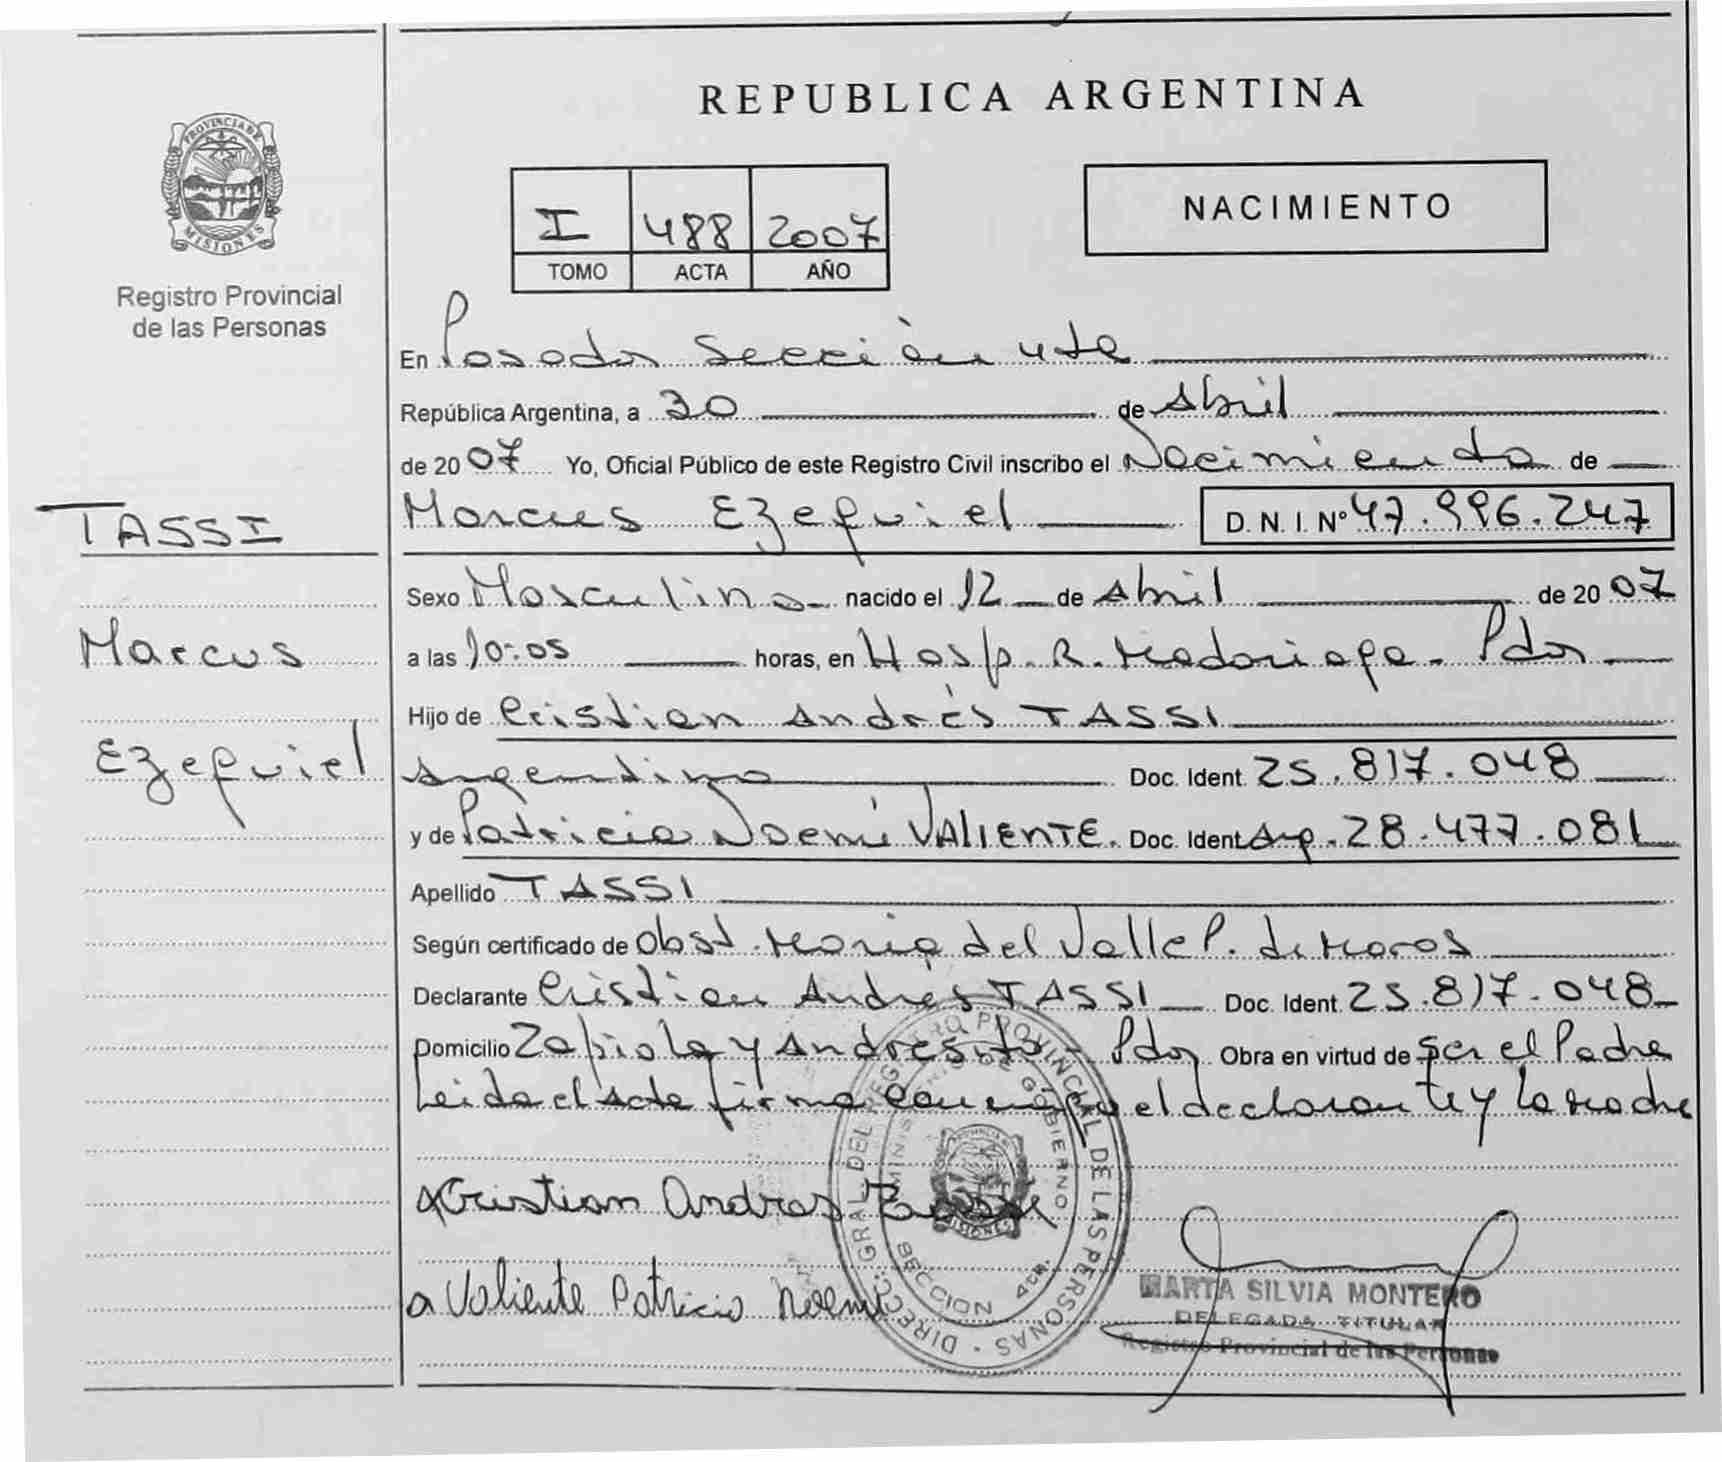 REPUBLICA ARGENTINA
PROVINCIA DE MISIONES
Registro Provincial
de las Personas
I 488 2007
TOMO ACTA AÑO
NACIMIENTO
En Posadas Sección 4ta
República Argentina, a 30 de Abril
de 2007 Yo, Oficial Público de este Registro Civil inscribo el Nacimiento de
Marcus Ezequiel D.N.I. Nº 47.996.247
TASSI
Marcus
Ezequiel
Sexo Masculino nacido el 12 de Abril de 2007
a las 10:05 horas, en Hosp. R. Madariaga - Pdas
Hijo de Cristian Andrés TASSI
Argentino Doc. Ident. 25.817.048
y de Patricia Noemí VALIENTE. Doc. Ident. Arg. 28.477.081
Apellido TASSI
Según certificado de Obst. María del Valle P. de Maros
Declarante Cristian Andrés TASSI Doc. Ident. 25.817.048
Domicilio Zapiola y Andresito - Pdas Obra en virtud de ser el Padre
Leída el acta firma conmigo el declarante y la madre
Cristian Andres Tassi
Valiente Patricia Noemi
DIRECC. GRAL DEL REGISTRO PROVINCIAL DE LAS PERSONAS
MINISTERIO DE GOBIERNO
SECCION 4ta.
MISIONES
MARTA SILVIA MONTERO
DELEGADA TITULAR
Registro Provincial de las Personas